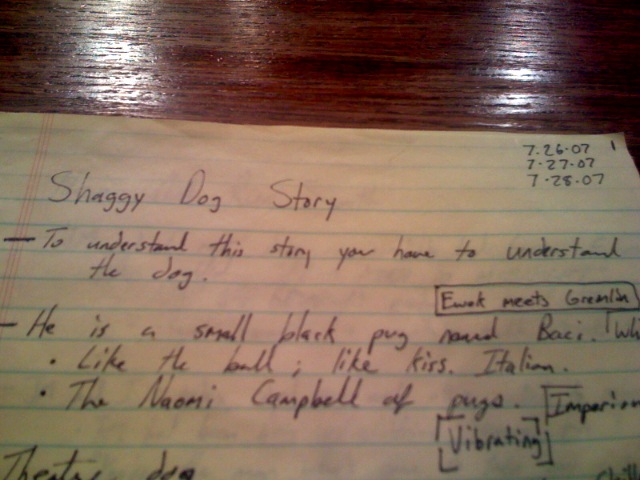 7.26.07 1
7.27.07
7.28.07
Shaggy Dog Story
— To understand this story you have to understand
the dog.
Ewok meets Gremlin
— He is a small black pug named Baci.
• Like the ball; like kiss. Italian.
• The Naomi Campbell of pugs.
[Vibrating]
Theatre dog